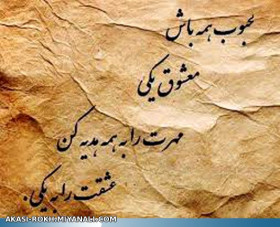 محبوب همه باش
معشوق یکی
مهرت را به همه هدیه کن
عشقت را به یکی.
AKASI-ROKH.MIYANALI.COM